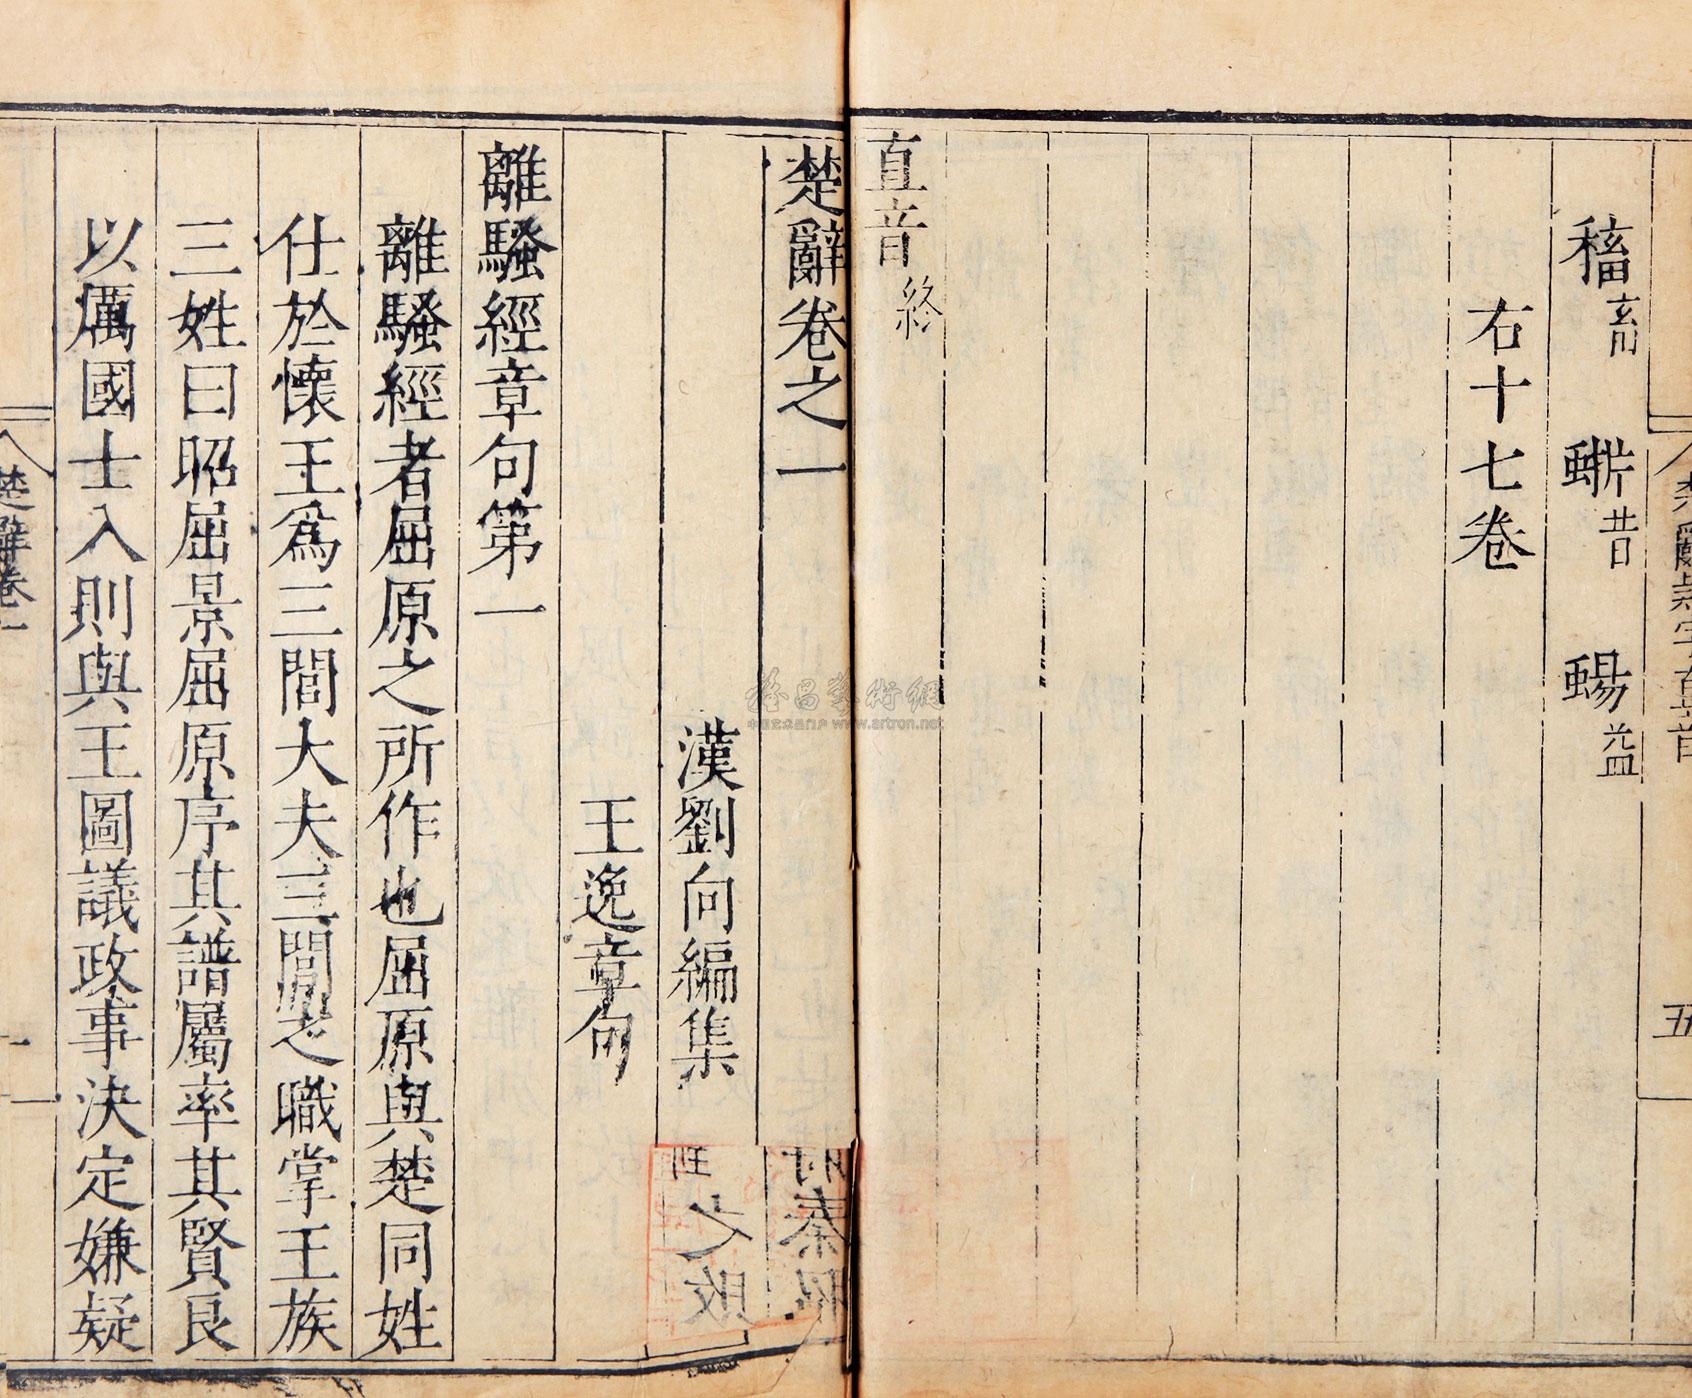 稸畜 蜥昔 蜴益
右十七卷
直音終
楚辭卷之一
漢劉向編集
王逸章句
離騷經章句第一
離騷經者屈原之所作也屈原與楚同姓
仕於懷王爲三閭大夫三閭之職掌王族
三姓曰昭屈景屈原序其譜屬率其賢良
以厲國士入則與王圖議政事決定嫌疑
楚辭卷一
一
楚辭疑字直音
五
www.artron.net